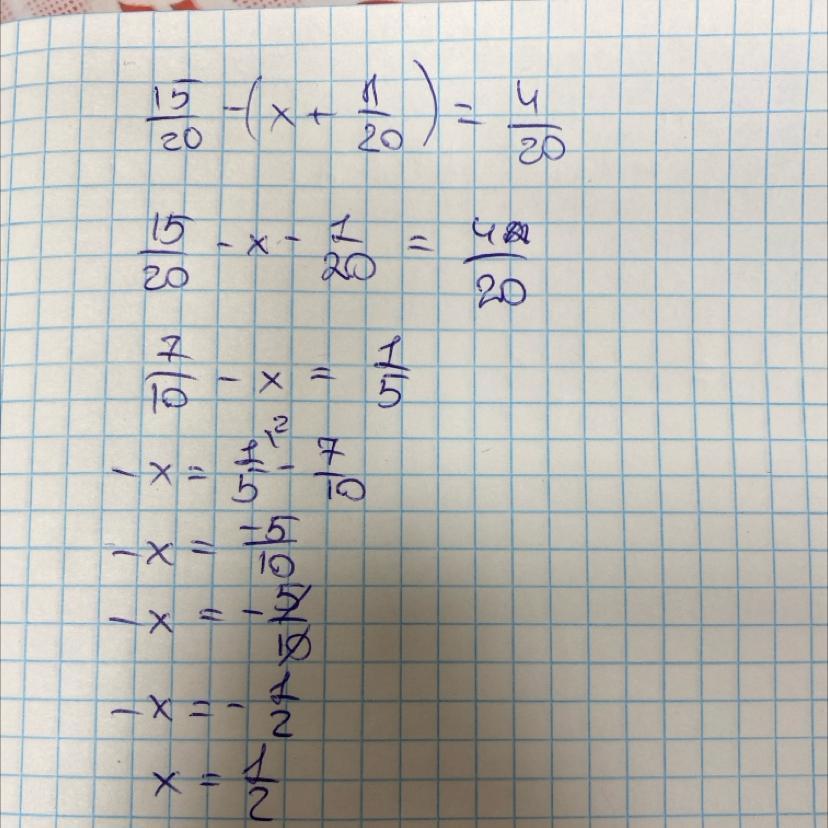 15/20 - (x + 1/20) = 4/20
15/20 - x - 1/20 = 4/20
7/10 - x = 1/5
- x = 1/5 \2 - 7/10
- x = -5/10
- x = - 5/10
- x = - 1/2
x = 1/2